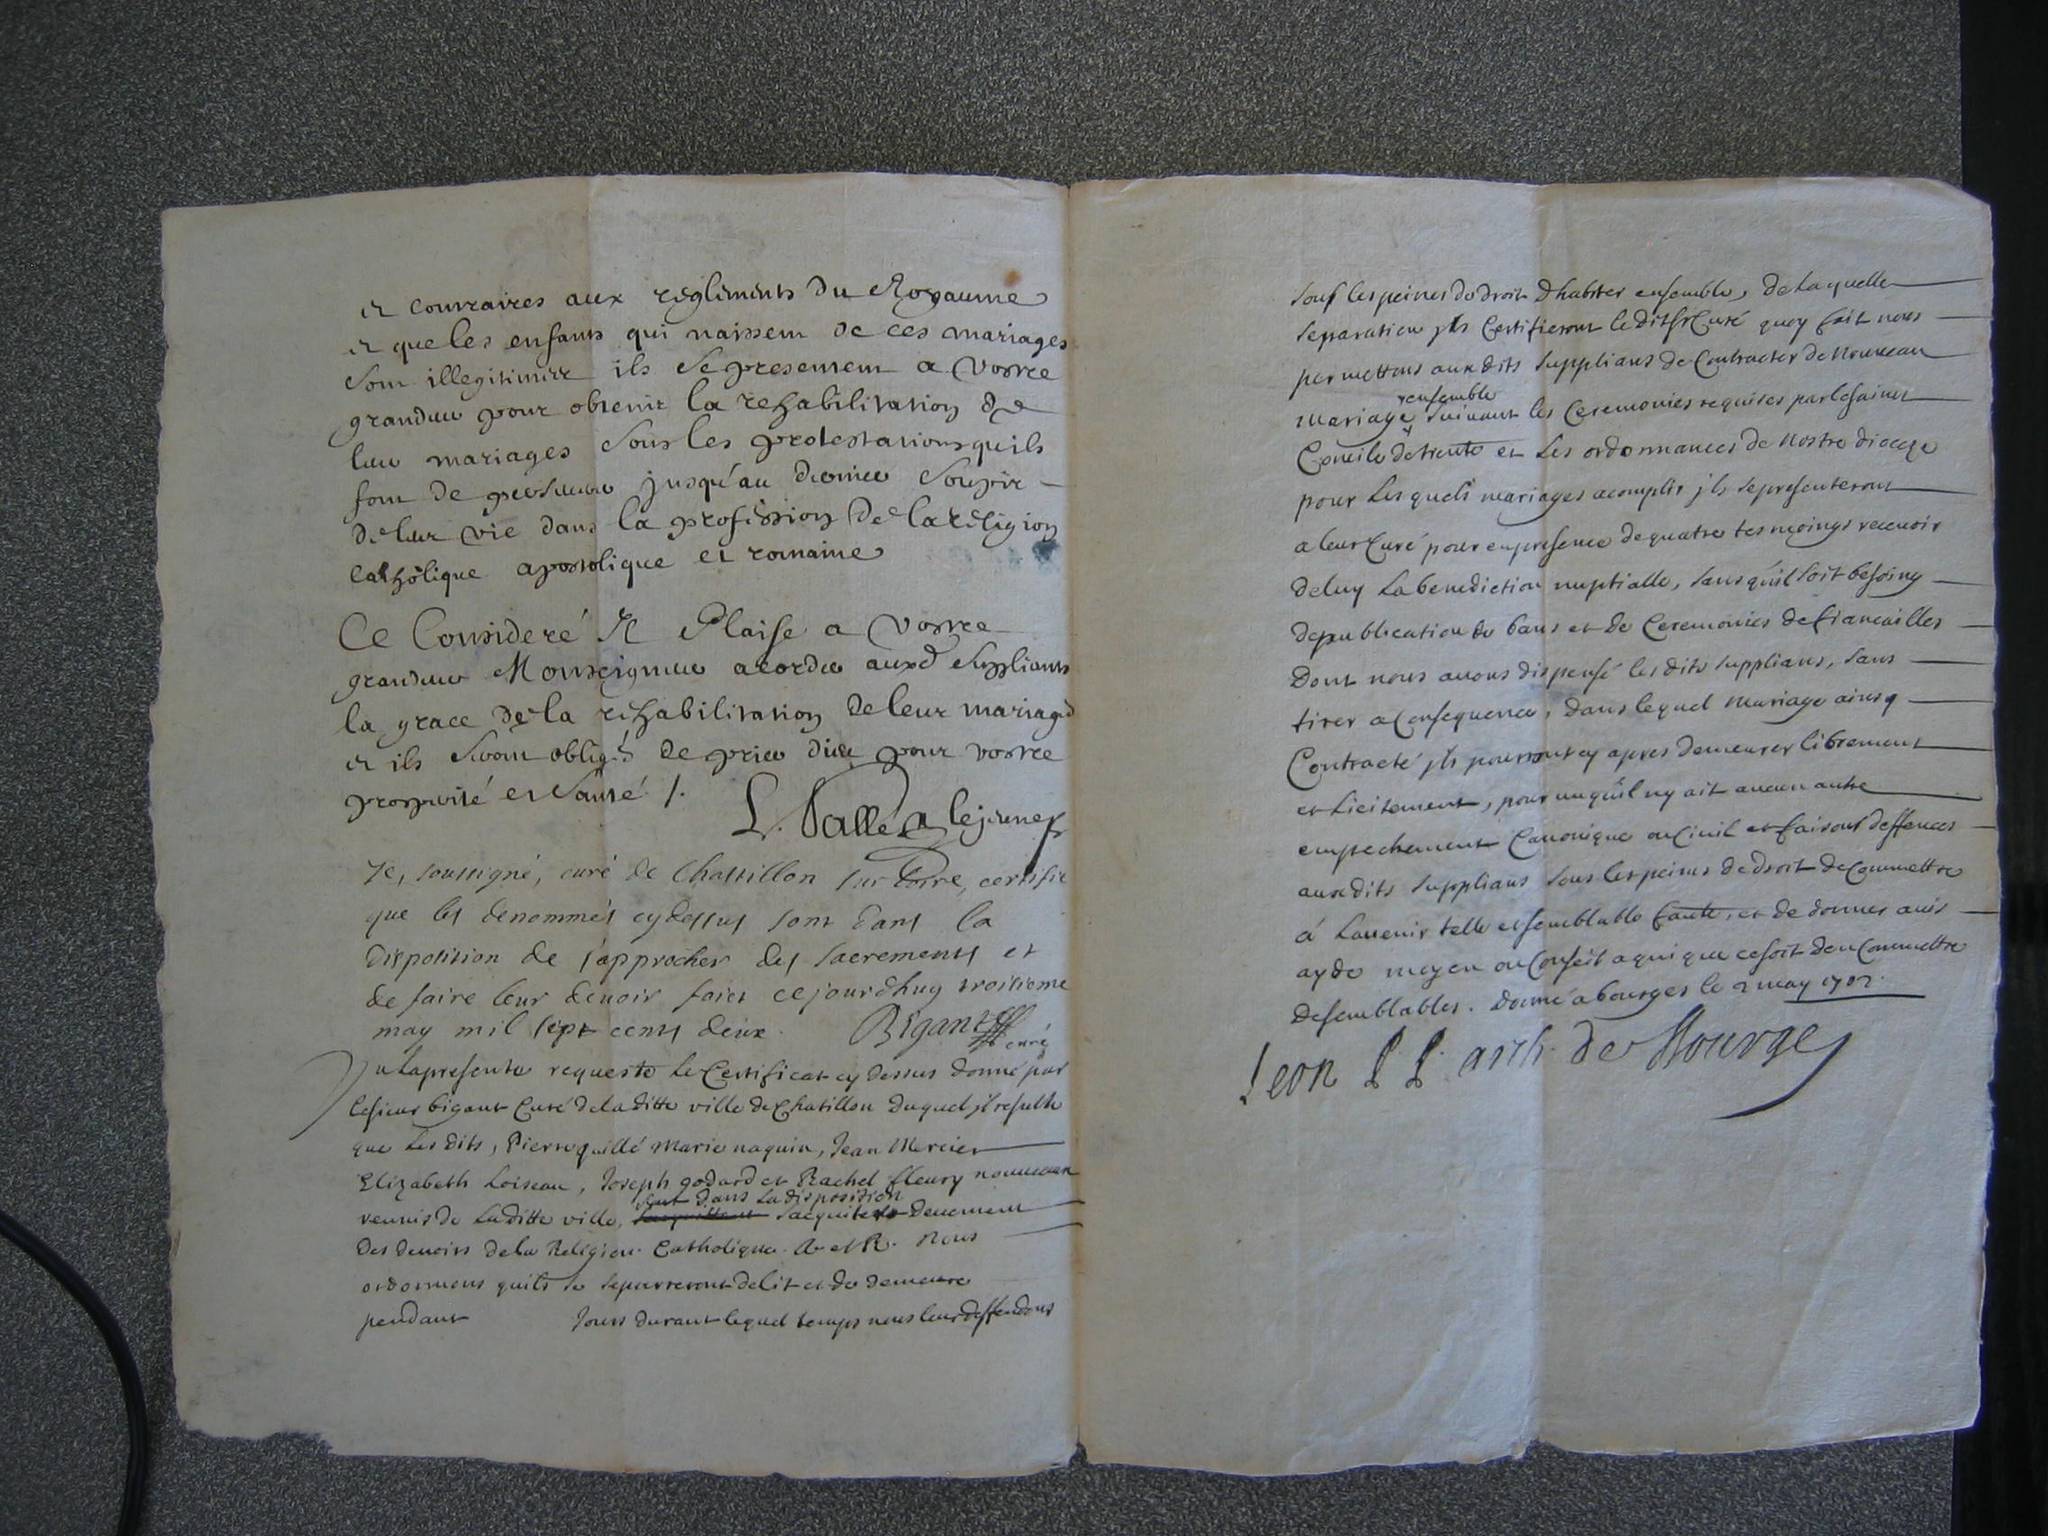 et contraires aux reglements du Royaume
et que les enfants qui naissent de ces mariages
sont illegitimes ils se presentent a vostre
grandeur pour obtenir la rehabilitation de
leur mariages sous les protestations quils
font de perseverer jusqu'au dernier soupir
de leur vie dans la profession de la religion
catholique apostolique et romaine
Ce Consideré Il Plaise a vostre
grandeur Monseigneur acorder auxd Suppliants
la grace de la rehabilitation de leur mariages
et ils seront obligés de prier dieu pour vostre
prosperité et santé ./.
L. Vallée le jeune
Je, soussigné, curé de Chastillon sur Loire, certifie
que les denommés cy dessus sont dans la
disposition de s'approcher des sacrements et
de faire leur devoir faict ce jourdhuy troisieme
may mil sept cents deux. Bigant
curé
Vu la presente requeste le Certificat cy dessus donné par
le sieur bigant Curé de laditte ville de Chatillon duquel jl resulte
que les dits, Pierre quillé Marie naquin, Jean Mercier
Elizabeth Loiseau, Joseph godard et Rachel fleury nouveaux
sont dans la disposition
reunis de laditte ville, sacquiter deuement
des devoirs de la Religion Catholique A. et R. Nous
ordonnons quils se separeront de lit et de demeure
pendant jours durant lequel temps nous leur deffendons
sous les peines de droit dhabiter ensemble, de laquelle
separation jls Certifieront ledit sr Curé quoy fait nous
permettons auxdits supplians de Contracter de Nouveau
ensemble
mariage, suivant les Ceremonies requises par le saint
Concile de trente et les ordonnances de nostre dioceze
pour les quels mariages acomplir jls se presenteront
a leur Curé pour en presence de quatre tesmoings recevoir
de luy la benediction nuptialle, sans qu'il soit besoing
de publication de bans et de Ceremonies de fiancailles
Dont nous avons dispensé lesdits supplians, sans
tirer a Consequence, dans lequel mariage ainsy
Contracté jls pourront cy apres demeurer librement
et licitement, pourvu qu'il ny ait aucun autre
empechement Canonique ou Civil et faisons deffences
auxdits supplians sous les peines de droit de Commettre
á L'avenir telle et semblable faute, et de donner avis
ayde moyen ou Conseil a qui que ce soit den Commettre
de semblables. Donné a bourges le 2 may 1702.
Leon P. P. arch. de Bourges